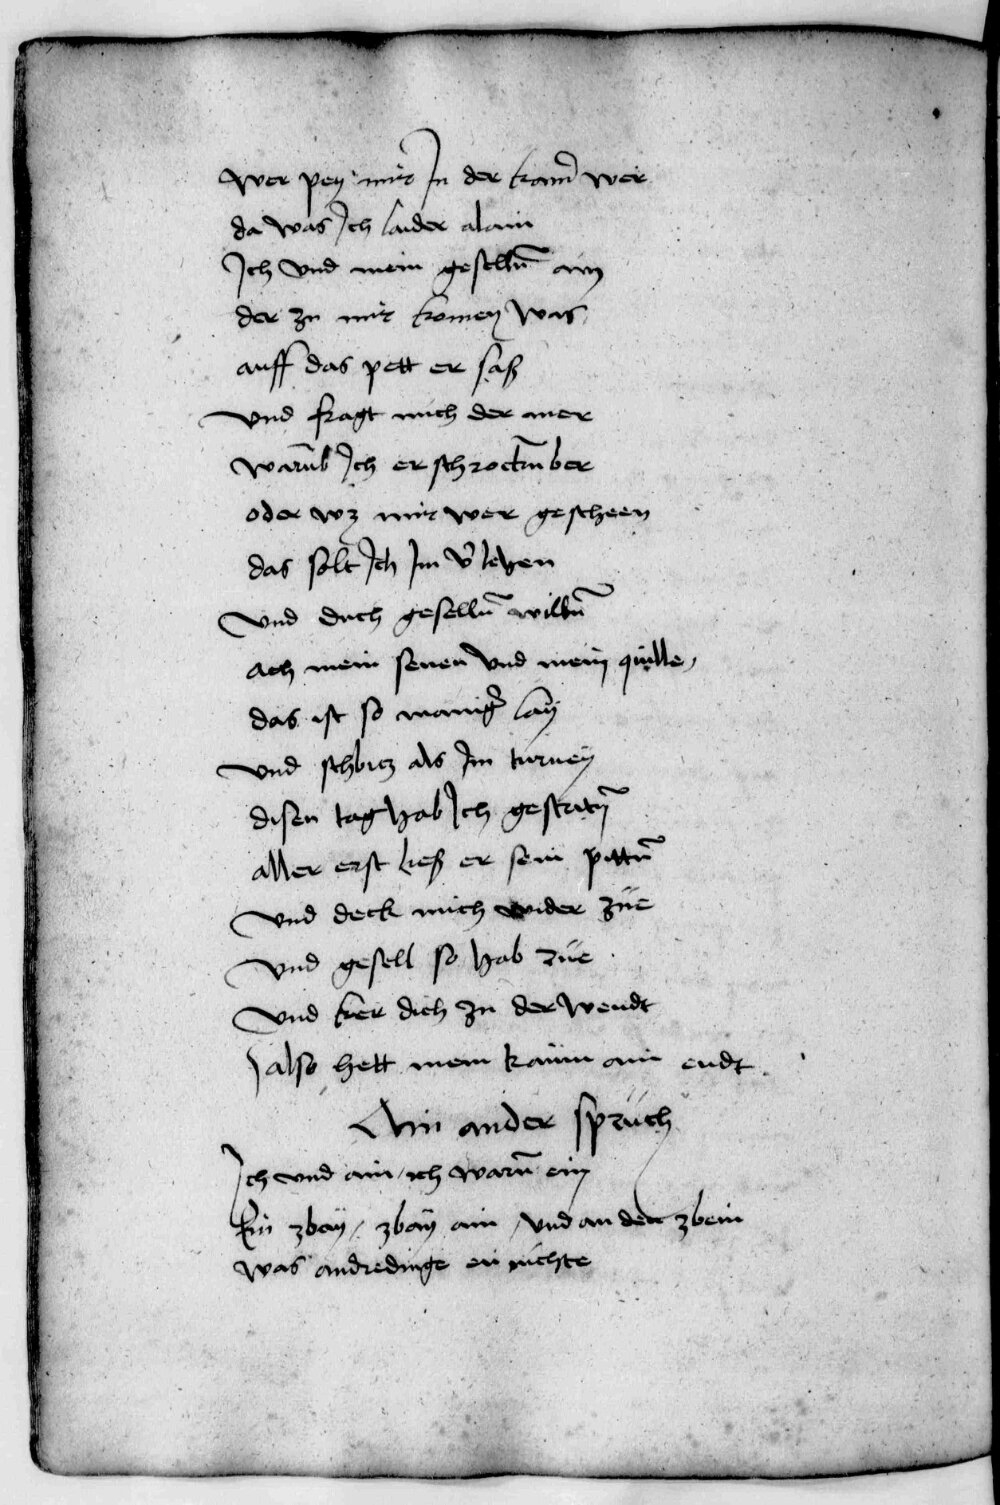 wer peÿ mir In der kam̄ wer
da was Ich laider alain
Ich vnd mein geselln̄ ain
der zu mir komen was
auff das pett er saß
vnd fragt mich der mer
warūb Ich erschrockn̄ ber
oder wz mir wer gescheen
das solt Ich Im v̾iehen
vnd durch geselln̄ willn̄
ach mein senen vnd mein quille
das ist so manig̾ laÿ
vnd schbicz als Im turneÿ
disen tag hab Ich gestritn̄
aller erst ließ er sein pittn̄
vnd deck mich wider züe
vnd gesell so hab rüe
vnd ker dich zu der wendt
also hett mein traum ain endt
Ain ander spruch
Ich vnd ain / ich warn̄ ein
Ein zbaÿ / zbaÿ ain / vnd an den zbein
was andredinge ei nichte